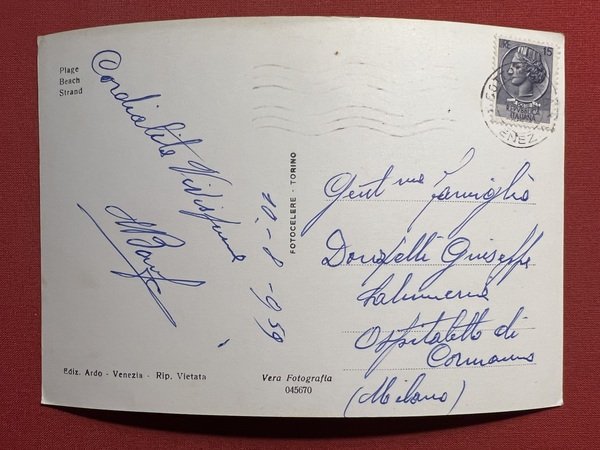 Plage
Beach
Strand
Cordialità Vivissime
10-8-959
FOTOCELERE - TORINO
Ediz. Ardo - Venezia - Rip. Vietata
Vera Fotografia
045670
15
ENEZ
Gent me Famiglia
Donzelli Giuseppe
Salumeria
Ospitaletto di
Cormano
(Milano)